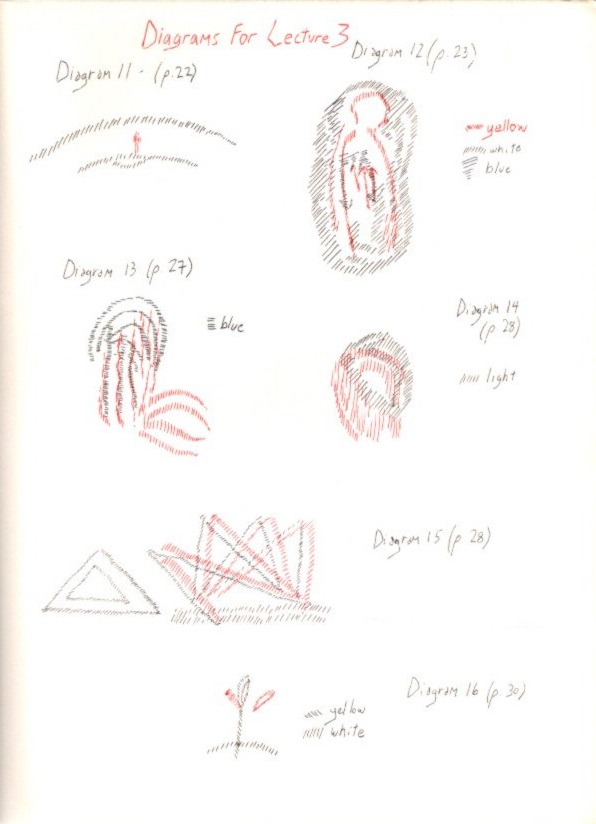 Diagrams For Lecture 3
Diagram 11 - (p.22)
Diagram 12 (p.23)
yellow
white
blue
Diagram 13 (p.27)
blue
Diagram 14
(p 28)
light
Diagram 15 (p 28)
Diagram 16 (p.30)
yellow
white